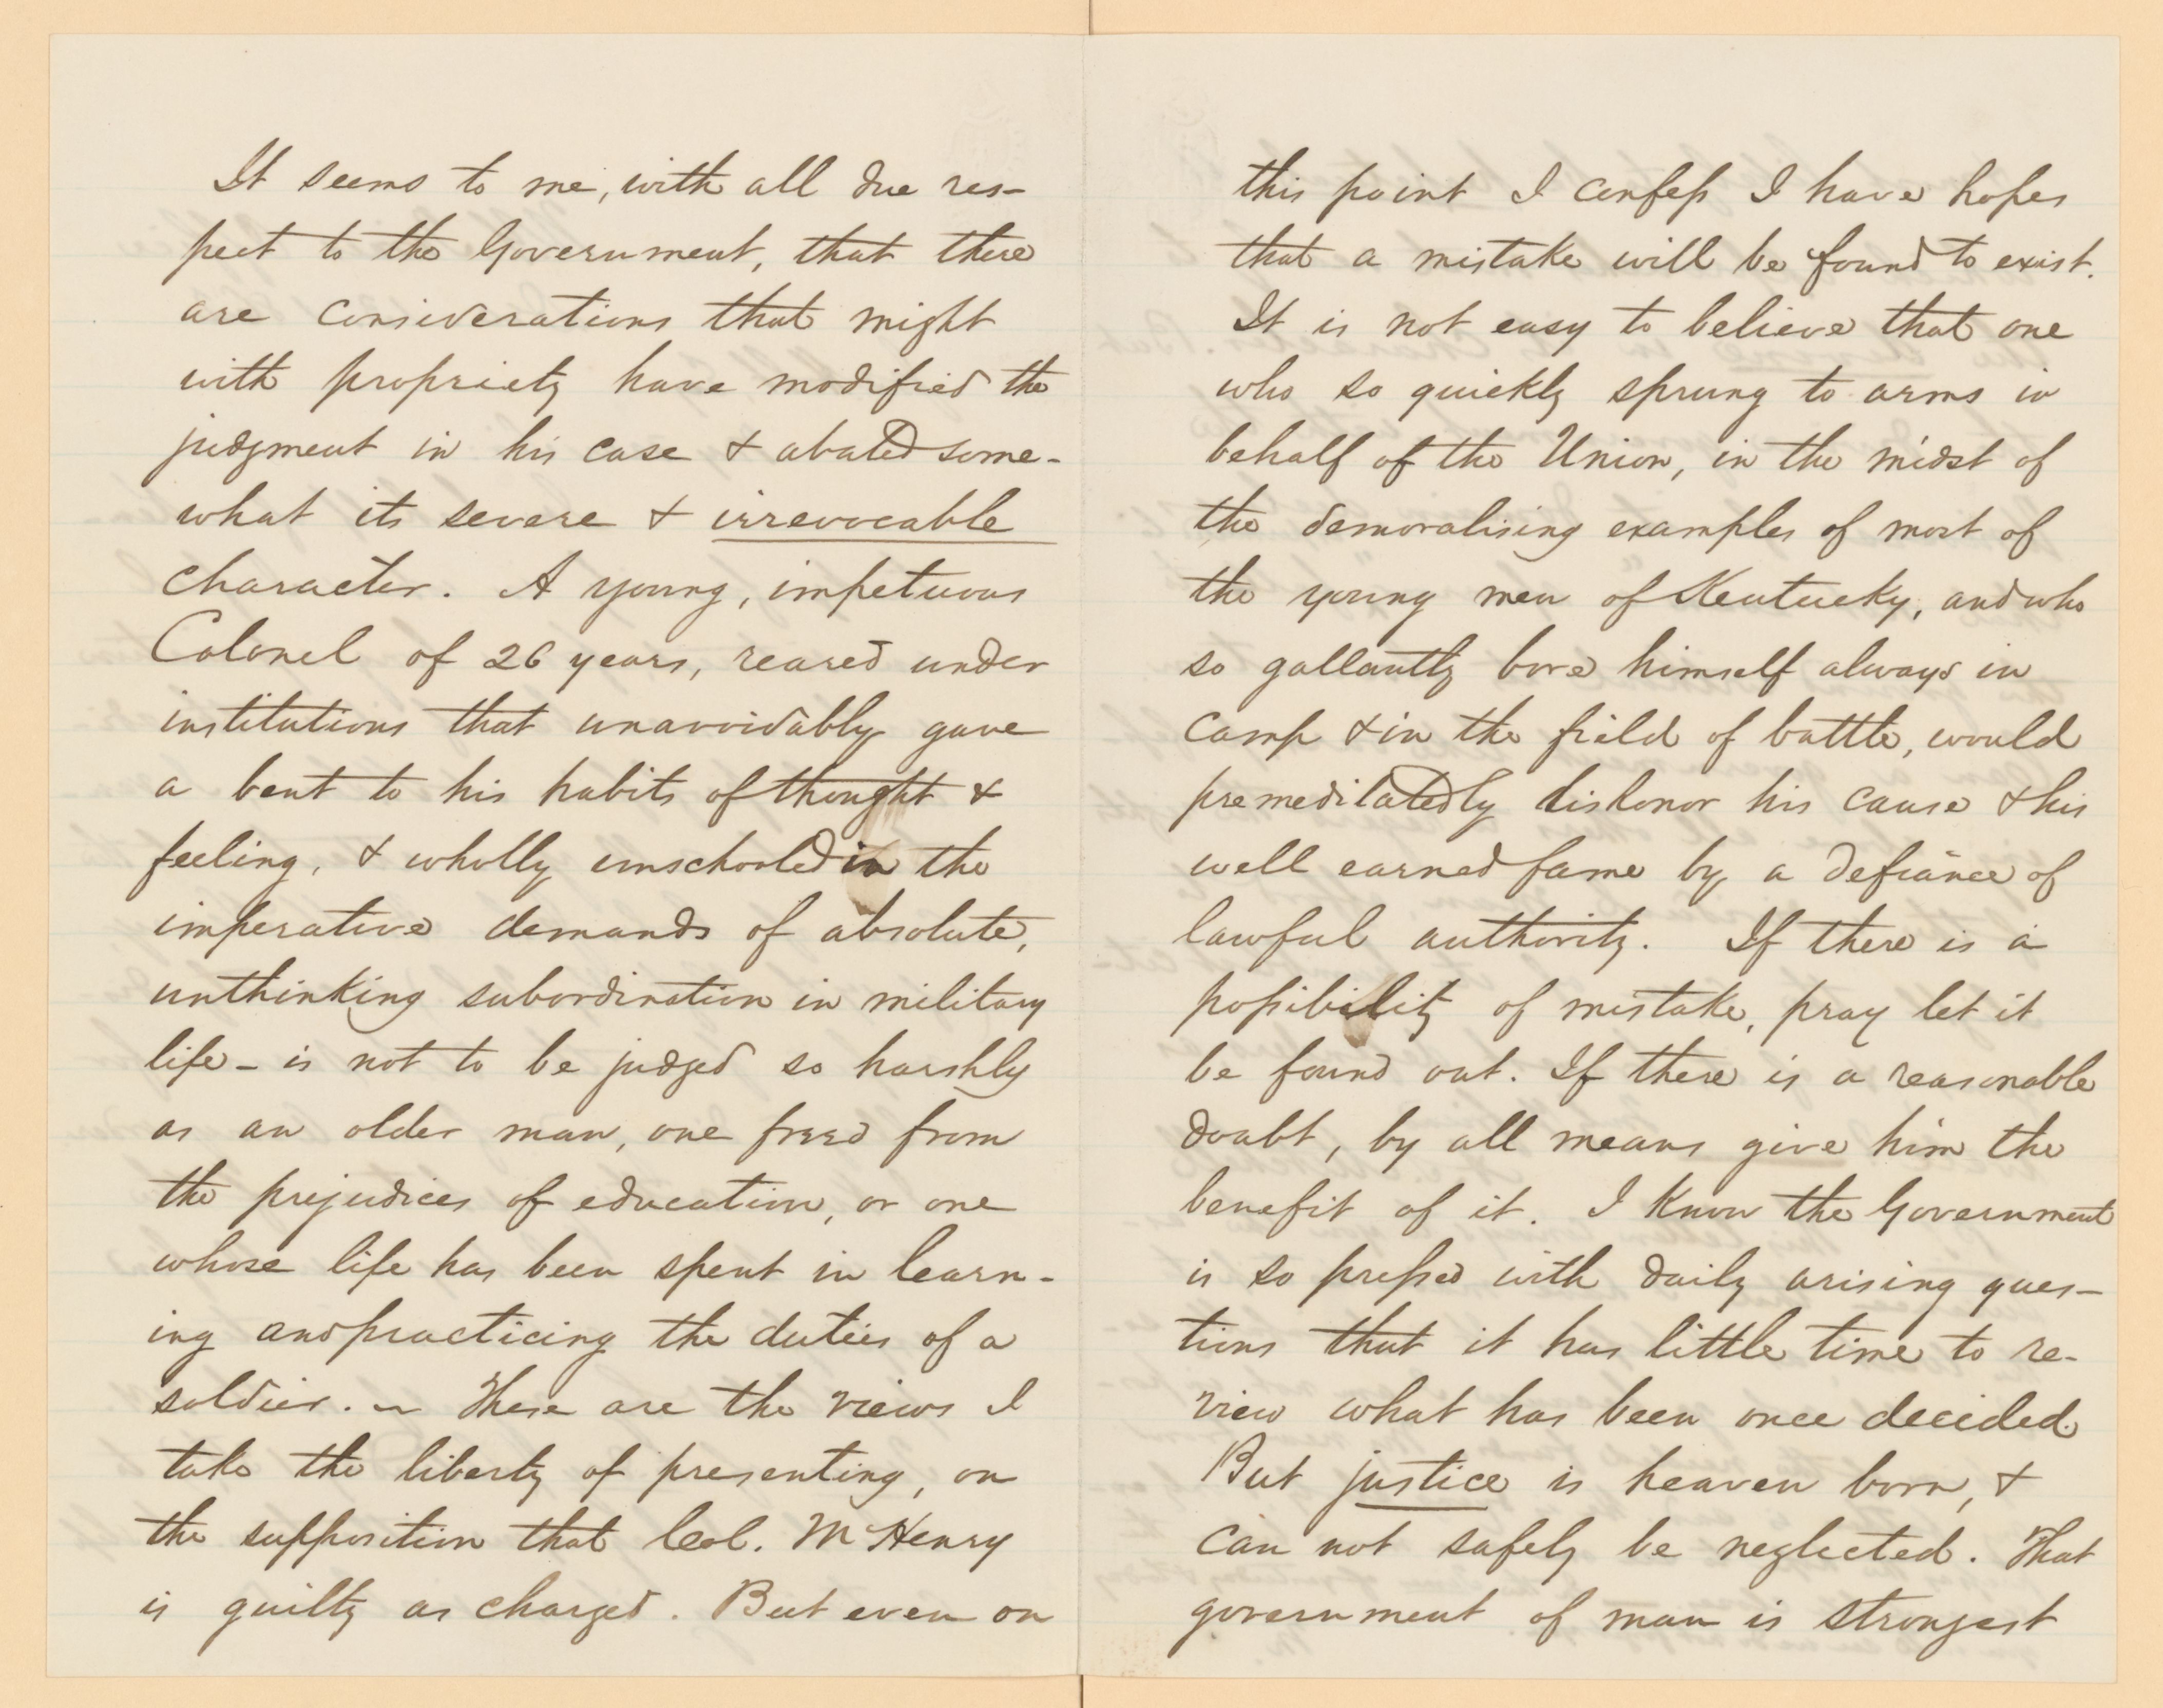 It seems to me, with all due res-
pect to the Government, that there
are considerations that might
with propriety have modified the
judgment in his case & abated some-
what its severe & irrevocable
character. A young, impetuous
Colonel of 26 years, reared under
institutions that unavoidably gave
a bent to his habits of thought &
feeling, & wholly unschooled in the
imperative demands of absolute,
unthinking subordination in military
life - is not to be judged so harshly
as an older man, one freed from
the prejudices of education, or one
whose life has been spent in learn-
ing and practicing the duties of a
soldier. ~ These are the views I
take the liberty of presenting, on
the supposition that Col. McHenry
is guilty as charged. But even on
this point I confess I have hopes
that a mistake will be found to exist.
It is not easy to believe that one
who so quickly sprung to arms in
behalf of the Union, in the midst of
the demoralising examples of most of
the young men of Kentucky, and who
so gallantly bore himself always in
camp & in the field of battle, would
premeditatedly dishonor his cause & his
well earned fame by a defiance of
lawful authority. If there is a
possibility of mistake, pray let it
be found out. If there is a reasonable
doubt, by all means give him the
benefit of it. I know the Government
is so pressed with daily arising ques-
tions that it has little time to re-
view what has been once decided.
But justice is heaven born, &
can not safely be neglected. That
government of man is strongest